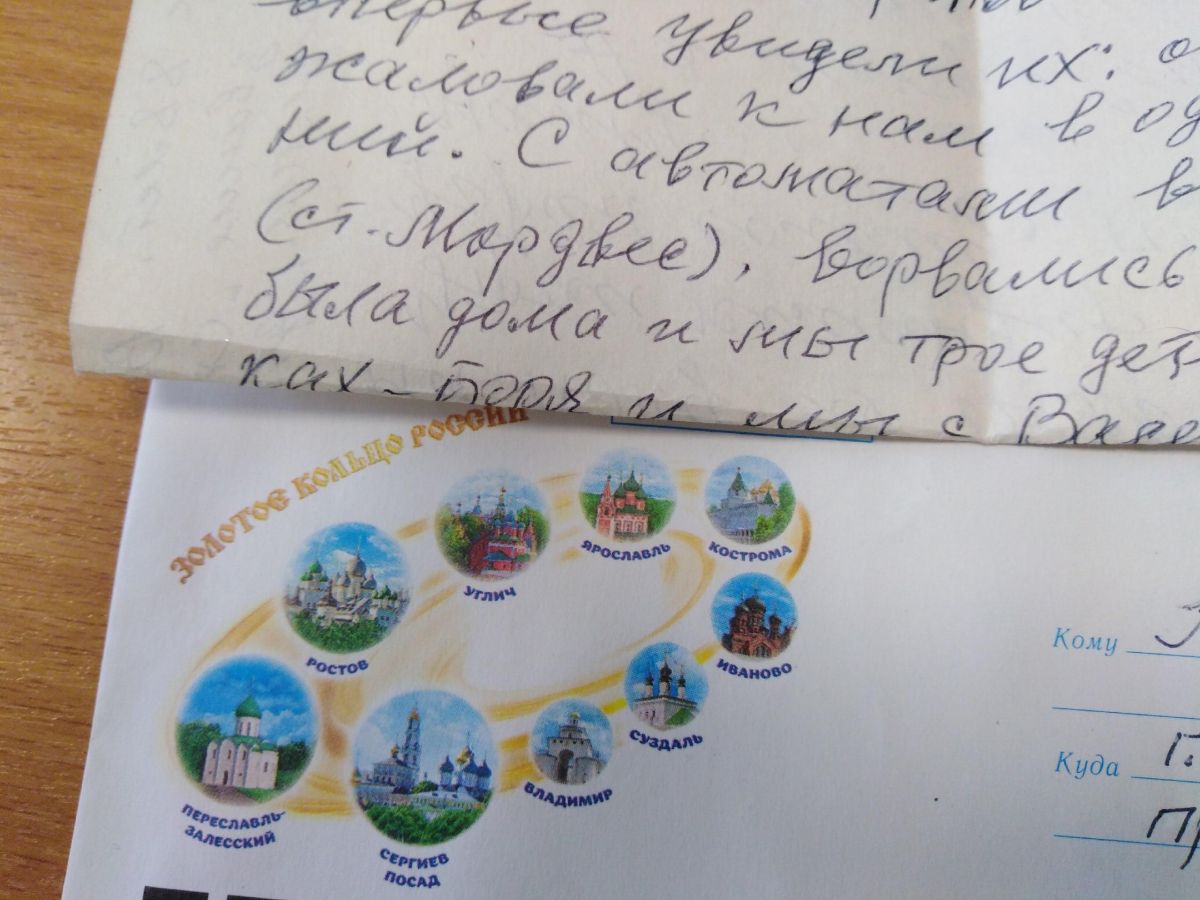 впервые увидели их: о
жаловали к нам в од
ний. С автоматами в
(ст. Мордвес), ворвались
была дома и мы трое дет
ках - Боря и мы с
ЗОЛОТОЕ КОЛЬЦО РОССИИ
КОСТРОМА
ЯРОСЛАВЛЬ
УГЛИЧ
РОСТОВ
ИВАНОВО
СУЗДАЛЬ
ВЛАДИМИР
ПЕРЕСЛАВЛЬ-
ЗАЛЕССКИЙ
СЕРГИЕВ
ПОСАД
Кому
Куда г.
пр